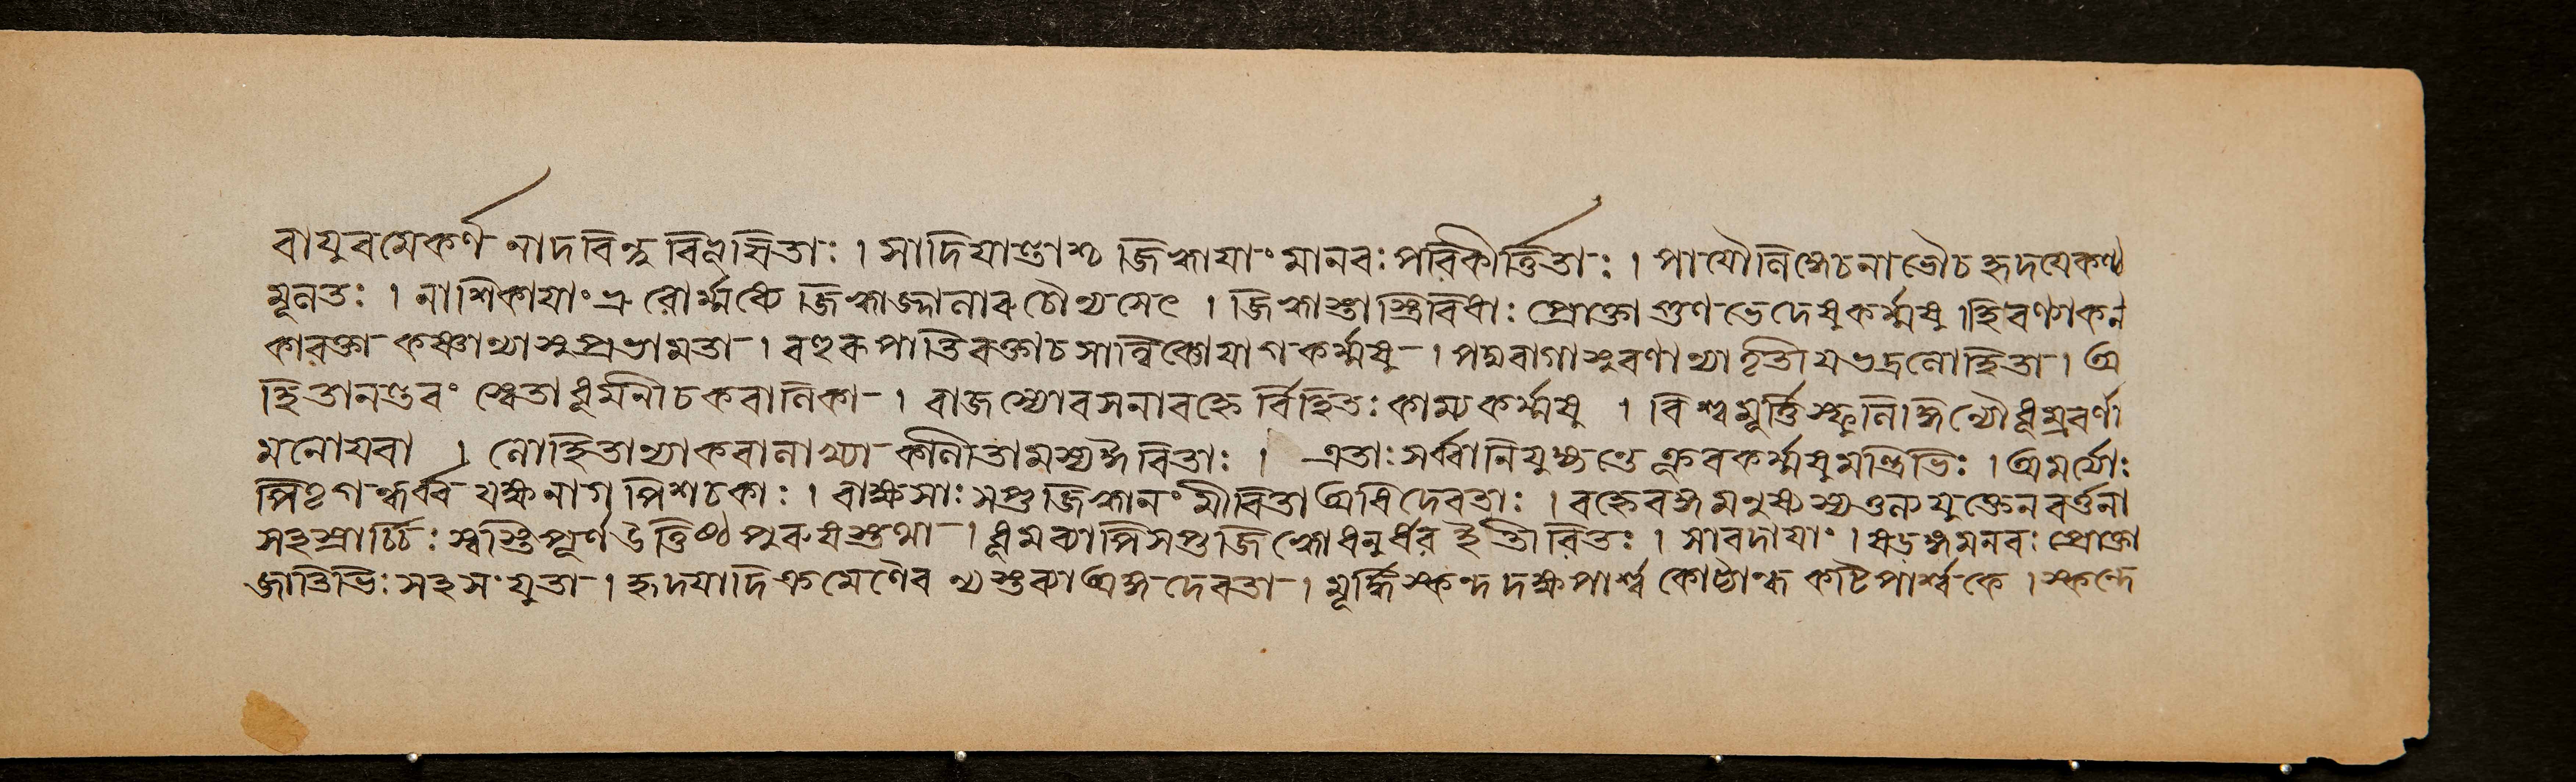 বাযুবমেকর্ণ নাদবিন্দু বিভূসিতাঃ । সাদিযাণ্তাশ্চ জিহ্বাযাং মানবঃ পরিকীর্ত্তিতাঃ । পাযৌনিঙ্গেচনাভৌচ হৃদযেকণ্ঠ
মূনতঃ । নাশিকাযাং ভ্রূ রোর্ম্মধ্যে জিহ্বাজ্জানাব চৌথ্যসেৎ । জিহ্বাস্তাস্ত্রিবিধাঃ প্রোক্তা গুণ ভেদেষুকর্ম্মষু । হিবণ্যাকন
কাৰক্তা কষ্ণাথ্যাসুপ্রভামতা । বহুৰূপাতিৰক্তাচ সাত্বিকোযাগ কর্ম্মষু । পদ্মবাগাসুবর্ণাথ্যাতৃতিযভদ্রনোহিতা । অ
হিতানন্তবং শ্বেতা ধূমনীচ কবানিকা । বাজস্যোবসনাবহ্নে র্বিহিতঃ কাম্যকর্ম্মষু । বিশ্বমূর্ত্তি স্ফুনিঙ্গিন্যৌ ধূম্রবর্ণা
মনোযবা । নোহিতাথ্যাকবানাখ্যা কানীতামস্যঙ্গৈবিতাঃ । এতাঃ সর্ব্বানিযুজ্যন্তে ক্রূবকর্ম্মষুমন্ত্রিভিঃ । অমর্ত্যোঃ
পিতৃগন্ধর্ব্ব যক্ষনাগ পিশচকাঃ । বাক্ষসাঃ সপ্তজিহ্বানং মীবিতা অধিদেবতাঃ । বহ্নেবঙ্গমনুষ্যস্যণ্তন্যযুক্তেন বর্ত্তনা
সহস্রার্চ্চিঃ স্বস্তিপূর্ণ উত্তিষ্ঠ পুরুষস্তথা । ধূমব্যাপিসপ্তজিহ্বোধনুর্ধর ইতীরিতঃ । সাবদাযাং । ষড়ঙ্গমনবঃ প্রোক্তা
জাতিভিঃ সহসংযুতা । হৃদযাদিক্রমেণৈব ন্যস্তব্যা অঙ্গদেবতা । মূর্দ্ধিস্কন্দ দক্ষপার্শ্ব কোষ্ঠান্ধ কটিপার্শ্বকে । স্কন্দে